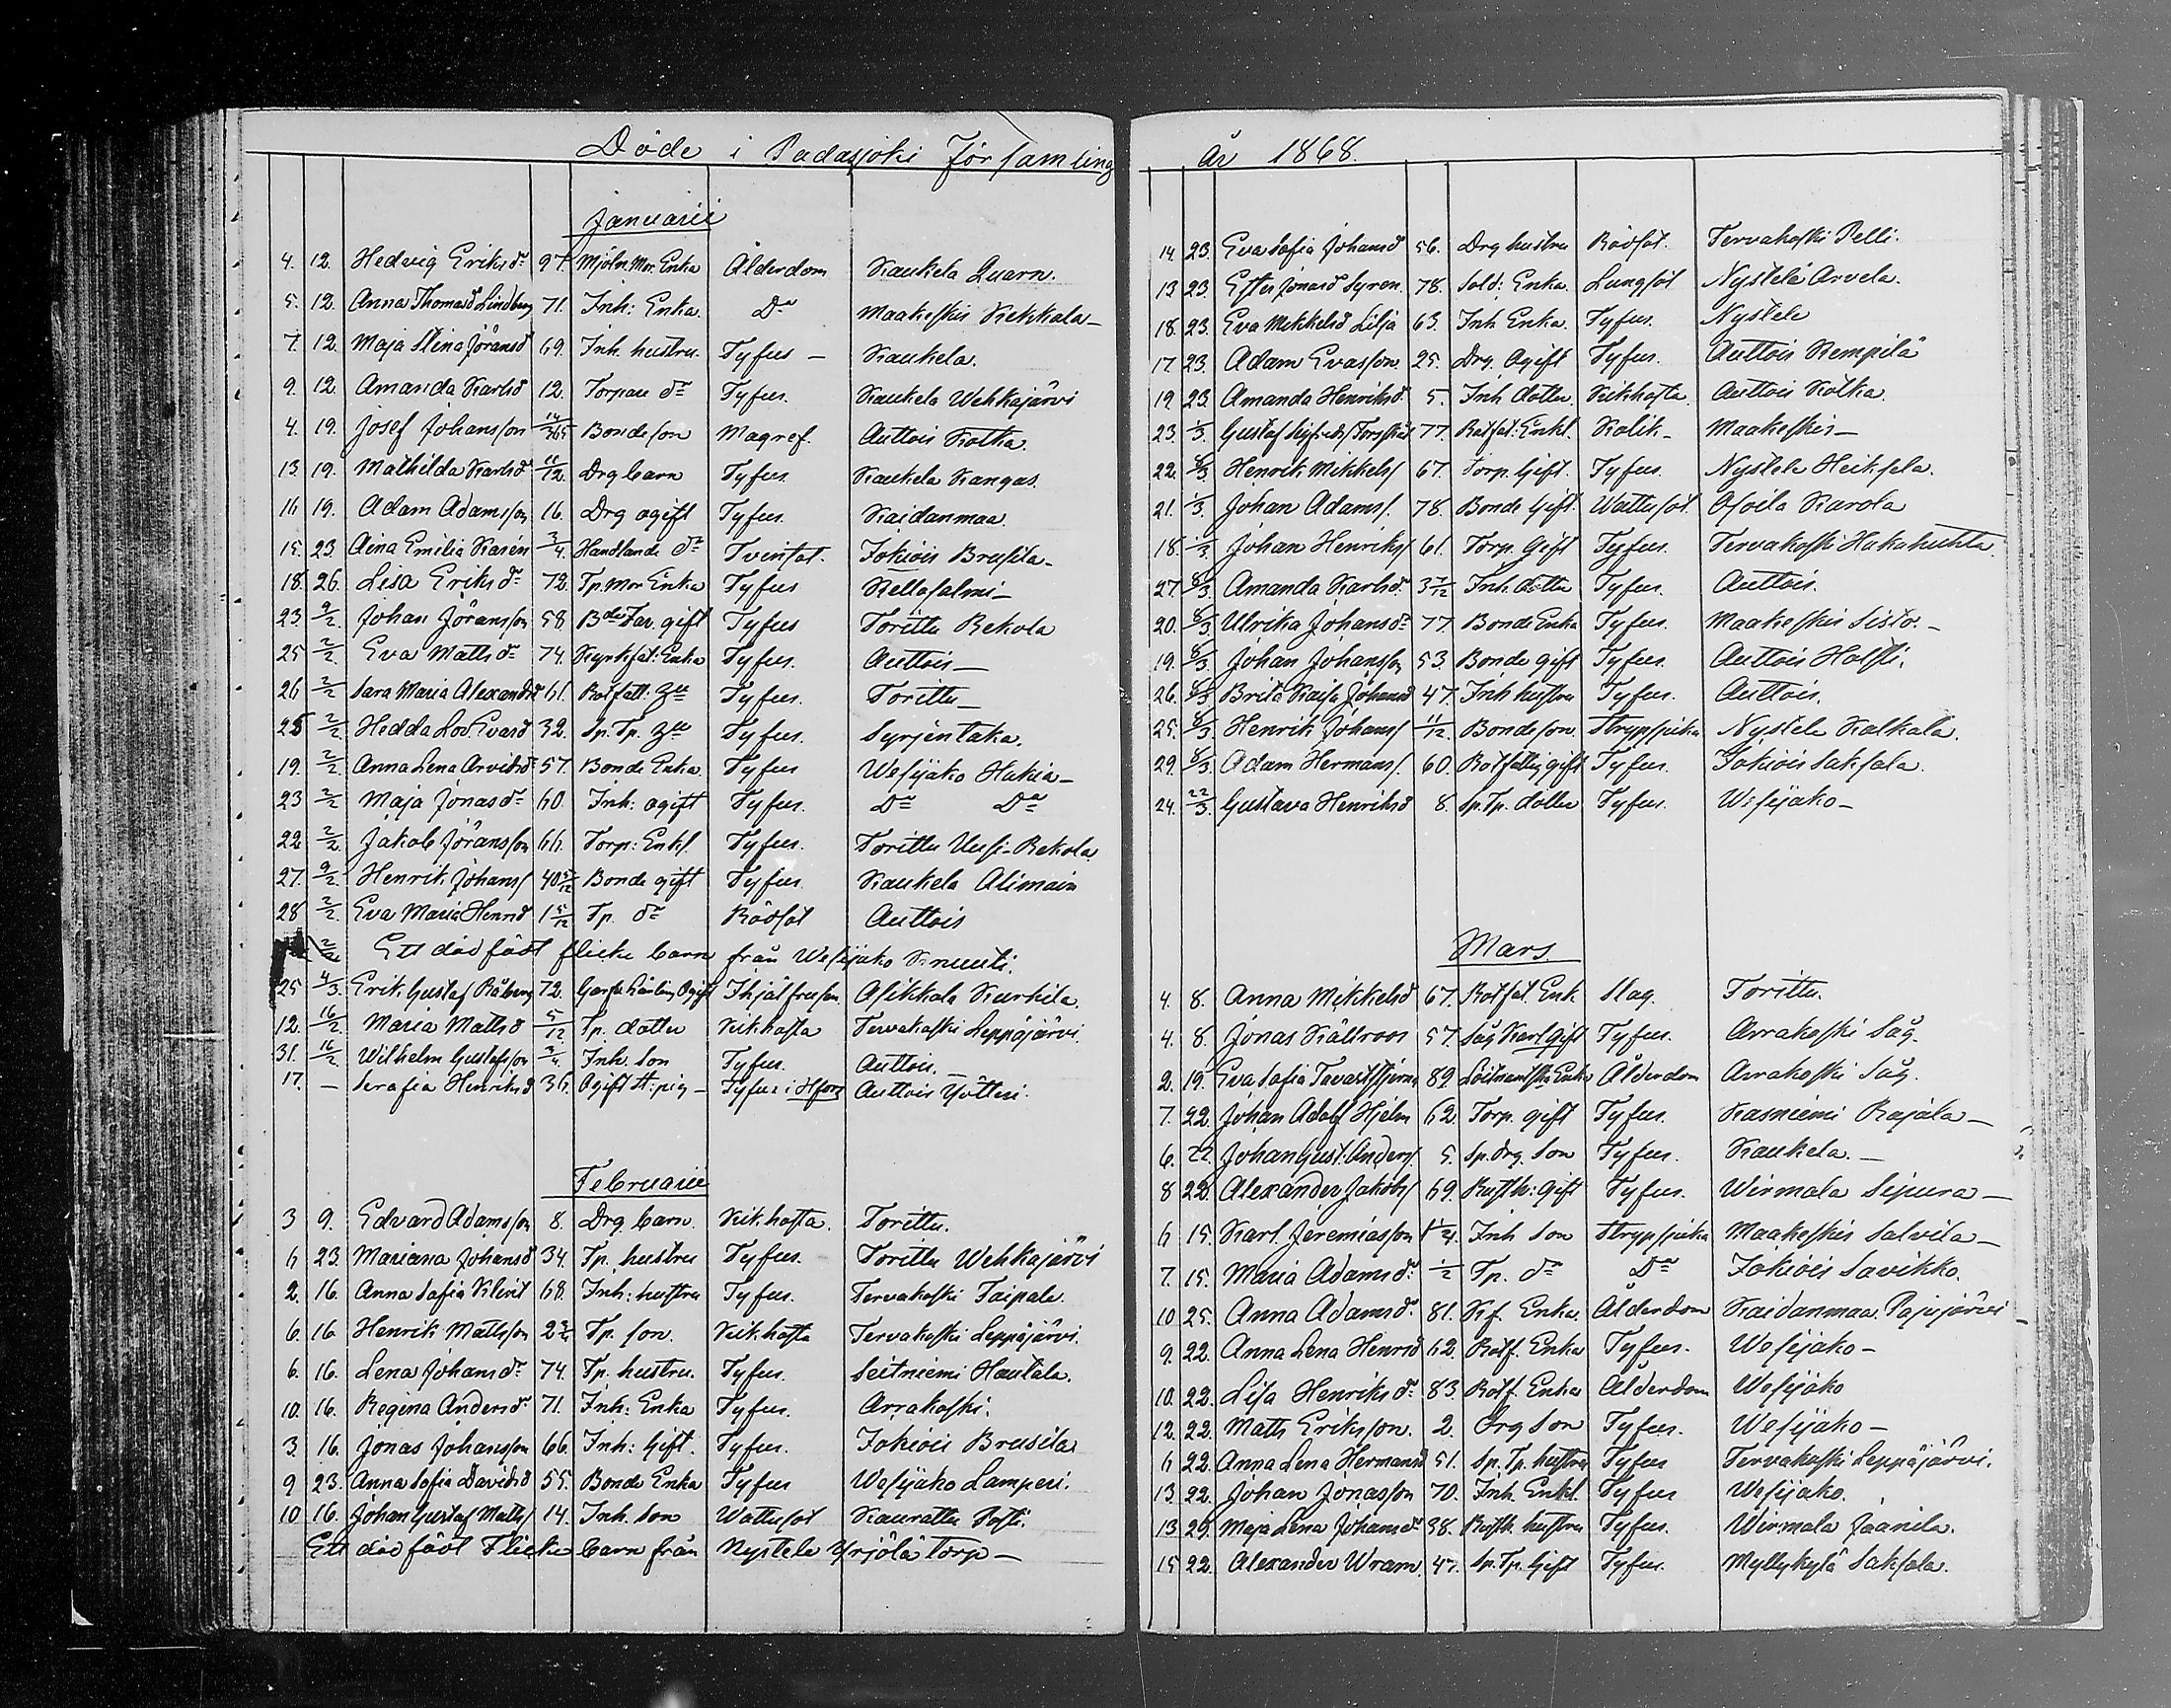 Döde i Padasjoki Församling
Januarii
4. 12. Hedvig Eriksdr 97. Mjöln. Mor. Enka Ålderdom Kaukela Quarn.
5. 12. Anna Thomasd Lindberg 71. Inh: Enka. Do Maakeskis Kekkala
7. 12. Maja Stina Jöransd 69. Inh. hustru. Tyfus Kaukela.
9. 12. Amanda Karlsd 12. Torpare dr Tyfus. Kaukela Wehkajärvi
4. 19. Josef Johansson 14/365 Bondeson Magref. Auttois Kotka.
13 19. Mathilda Karlsd 11/12. Drg barn Tyfus Kaukela Kangas.
16 19. Adam Adamsson 16. Drg ogift Tyfus. Kaidanmaa.
15. 23. Aina Emilia Karén 3/4. Handlande dr Tvinsot. Jokiois Brusila
18. 26. Lisa Eriksdr 72. Tp. Mor Enka Tyfus Kellosalmi
23 9/2. Johan Jöransson 58 Bde Far. gift Tyfus Torittu Rekola
25 2/2. Eva Mattsdr 74. Kyrkfat: Enka Tyfus. Auttois
26 2/2. Sara Maria Alexandrd 61. Rotfatt: Tyfus. Torittu
25 2/2. Hedda Lov. Evasd 32. Sp. Tp. Tyfus. Syrjentaka.
19. 2/2. Anna Lena Arvidsd 57. Bonde Enka Tyfus Wesijako Hakia
23 2/2 Maja Jonasdr 60. Inh: ogift Tyfus. Do Do
22 2/2. Jakob Jöransson 66. Torp: Enkl. Tyfus. Torittu Uusi-Rekola
27. 9/2. Henrik Johans 40 5/12 Bonde gift Tyfus. Kaukela Alimain
28 2/2. Eva Maria Henrsd 1 5/12 Tp. dr Rödsot Auttois
2/2 Ett dödfödt flicke barn från Wesijako Knuuti.
25 4/3. Erik Gustaf Råberg 72. Ogift Ihjälfrusen. Asikkala Kurhila
12. 16/2. Maria Mattsd 5/12 Tp. dotter Kikhosta Tervakoski Leppäjärvi.
31. 16/2 Wilhelm Gustafsson 3/4 Inh. son Tyfus. Auttois.
17. — Serafia Henriksd 36. Ogift tt: pig Tyfus i Hfors Auttois Yötteri.
Februarii
3 9. Edvard Adamsson 8. Drg. barn. Kikhosta. Torittu.
6 23. Mariana Johansd 34. Tp. hustru Tyfus. Torittu Wehkajärvi
2. 16. Anna Sofia Klint 68. Inh: hustru Tyfus. Tervakoski Taipale.
6. 16 Henrik Mattsson Tp. son. Kikhosta Tervakoski Leppäjärvi.
6. 16. Lena Johansdr 74. Tp. hustru. Tyfus. Seitniemi Hautala.
10. 16. Regina Andersdr 71. Inh: Enka Tyfus. Arrakoski.
3 16. Jonas Johansson 66. Inh: Gift. Tyfus. Jokiois Brusila
9 23. Anna Sofia Davidsd 55. Bonde Enka Tyfus Wesijako Lamperi.
10 16. Johan Gustaf Matts 14. Inh. son Wattusot Kaurattu Posti.
Ett dödfödt Flicke barn från Nystela Yrjölä torp
År 1868.
14. 23. Eva Sofia Johansd 56. Drg hustru Rödsot. Tervakoski Pelli.
13 23. Ester Jonasd Syren. 78. Sold: Enka. Lungsot Nystelä Arvela.
18. 23. Eva Mikkelsd Lilja 63. Inh Enka. Tyfus. Nystele
17 23. Adam Evasson. 25. Drg. Ogift Tyfus. Auttois Rempilä
19 23. Amanda Henriksd. 5. Inh dotter Kikhosta. Auttois Kotka.
23. 1/3. Gustaf Sigfrids Forsskåt 77. Rotfat: Enkl. Kolik Maakeskis
22. 8/3. Henrik Mikkels 67. Torp. Gift. Tyfus. Nystele Heikfela.
21. 1/3. Johan Adams. 78. Bonde Gift. Wattusot. Osoila Karola
18. 1/3 Johan Henriks 61. Torp. Gift Tyfus. Tervakoski Hakahuhta
27. 8/3. Amanda Karlsd. 3 7/12 Inh. dotter Tyfus. Auttois.
20. 8/3. Ulrika Johansdr 77. Bonde Enka Tyfus. Maakeskis Sisto
19. 8/3. Johan Johansson 53. Bonde gift Tyfus. Auttois Holsti.
26. 8/3 Brita Kaisa Johansd 47. Inh hustru Tyfus. Auttois.
25. 8/3 Henrik Johans 11/12 Bondeson. Strypsjuka Nystele Kalkala.
29. 8/3. Adam Hermans. 60. Rotfattig gift Tyfus. Jokiois Saksala.
24. 22/3. Gustava Henriksd 8. Sp. Tp. dotter Tyfus. Wesijako
Mars.
4. 8. Anna Mikkelsd 67. Rotfat. Enk. Slag. Torittu.
4. 8. Jonas Källroos 57. Såg Karl Gift Tyfus. Arrakoski Såg.
2. 19. Eva Sofia Tavaststjerna 89. Löitnantska Enka Ålderdom Arrakoski Såg.
7. 22. Johan Adolf Hjelm 62. Torp. gift Tyfus. Kasniemi Rajala
6. 22. Johan Gust. Anders. 5. Sp. drg. son Tyfus. Kaukela.
8 22. Alexander Jakobs 69. Rusth: Gift Tyfus. Wirmala Sipura
6 15. Karl Jeremiasson Inh son Strypsjuka Maakeskis Salvila
7. 15. Maria Adamsdr 1/2 Tp. dr Do Jokiois Savikko.
10 25. Anna Adamsdr. 81. Kf. Enka. Ålderdom Kaidanmaa Pajujärvi
9. 22. Anna Lena Henrsd 62. Rotf. Enka Tyfus. Wesijako
10. 22. Lisa Henriksdr 83. Rotf. Enka Ålderdom Wesijako
12. 22. Matts Eriksson. 2. Drg son Tyfus. Wesijako
6 22. Anna Lena Hermansd 51. Sp. Tp. hustru Tyfus Tervakoski Leppäjärvi.
13. 22. Johan Jonasson 70. Inh. Enkl. Tyfus Wesijako.
13 29. Maja Lena Johansdr 38. Rusth. hustru Tyfus. Wirmala Jaanila.
15 22. Alexander Wram. 47. Sp. Tp. Gift Tyfus. Myllykylä Saksala.